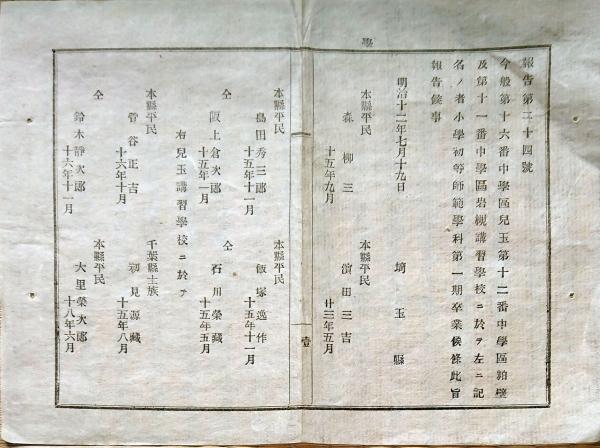 學
報告第二十四號
今般第十六番中學區兒玉第十二番中學區粕壁
及第十一番中學區岩槻講習學校ニ於テ左ニ記
名ノ者小學初等師範學科第一期卒業候條此旨
報告候事
明治十二年七月十九日　埼玉縣
本縣平民
森柳三
十五年九月
本縣平民
濵田三吉
廿三年五月
壹
本縣平民
島田秀三郎
十五年十一月
本縣平民
飯塚逸作
十五年十一月
仝
阪上倉次郎
十五年一月
仝
石川榮藏
十五年五月
右兒玉講習學校ニ於テ
本縣平民
菅谷正吉
十六年十月
千葉縣士族
初見源藏
十五年八月
仝
鈴木靜次郎
十六年十一月
本縣平民
大里榮次郎
十八年六月